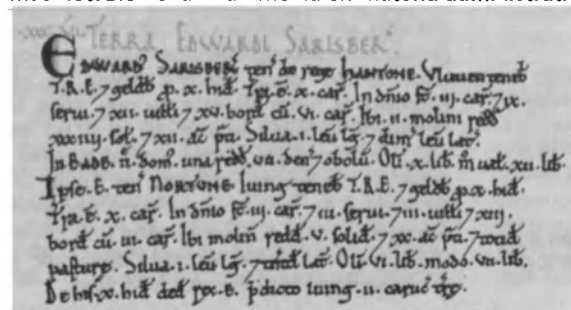 .xxxvii. TERRA EDWARDI SARISBER̃.
EDWARD' SARISBER' ten' de rege HANTONE. Vluuen teneb̃
T.R.E. ⁊ geldb̃ p . x. hid̃. Tr̃a. ẽ. x. car̃. In dñio st̃. ij. car̃. ⁊ ix.
serui. ⁊ xii. uilłi ⁊ xv. bord̃ cũ. vi. car̃. Ibi. ii. molini redd̃
xxxiiij. sol̃. ⁊ xxx. ac̃ p̃ti. Silua. i. leũ lg̃. ⁊ dim̃ leũ lat̃.
In BADE. ñ. dom'. una redd̃. vii. den̓ ⁊ obolũ. Olĩ. x. lib̃. m̊ uał. xii. lib̃.
Ipse. E. ten̓ NORTUNE. Iuing teneb̃ T.R.E. ⁊ geldb̃ . p. x. hid̃.
Tr̃a. ẽ. x. car̃. In dñio st̃. iij. car̃. ⁊ iii. serui. ⁊ iii. uilłi ⁊ xiij.
bord̃ cũ. iii. car̃. Ibi molin̓ redd̃. v. solid̃. ⁊ xx. ac̃ p̃ti. ⁊ totid̃
pasturę. Silua. i. leũ lg̃. ⁊ tñtd̃ lat̃. Olĩ. vi. lib̃. modo. vii. lib̃.
De his. x. hid̃ ded̃ rex. E. p̃dicto iuing. ii. caruc̃ tr̃ę.